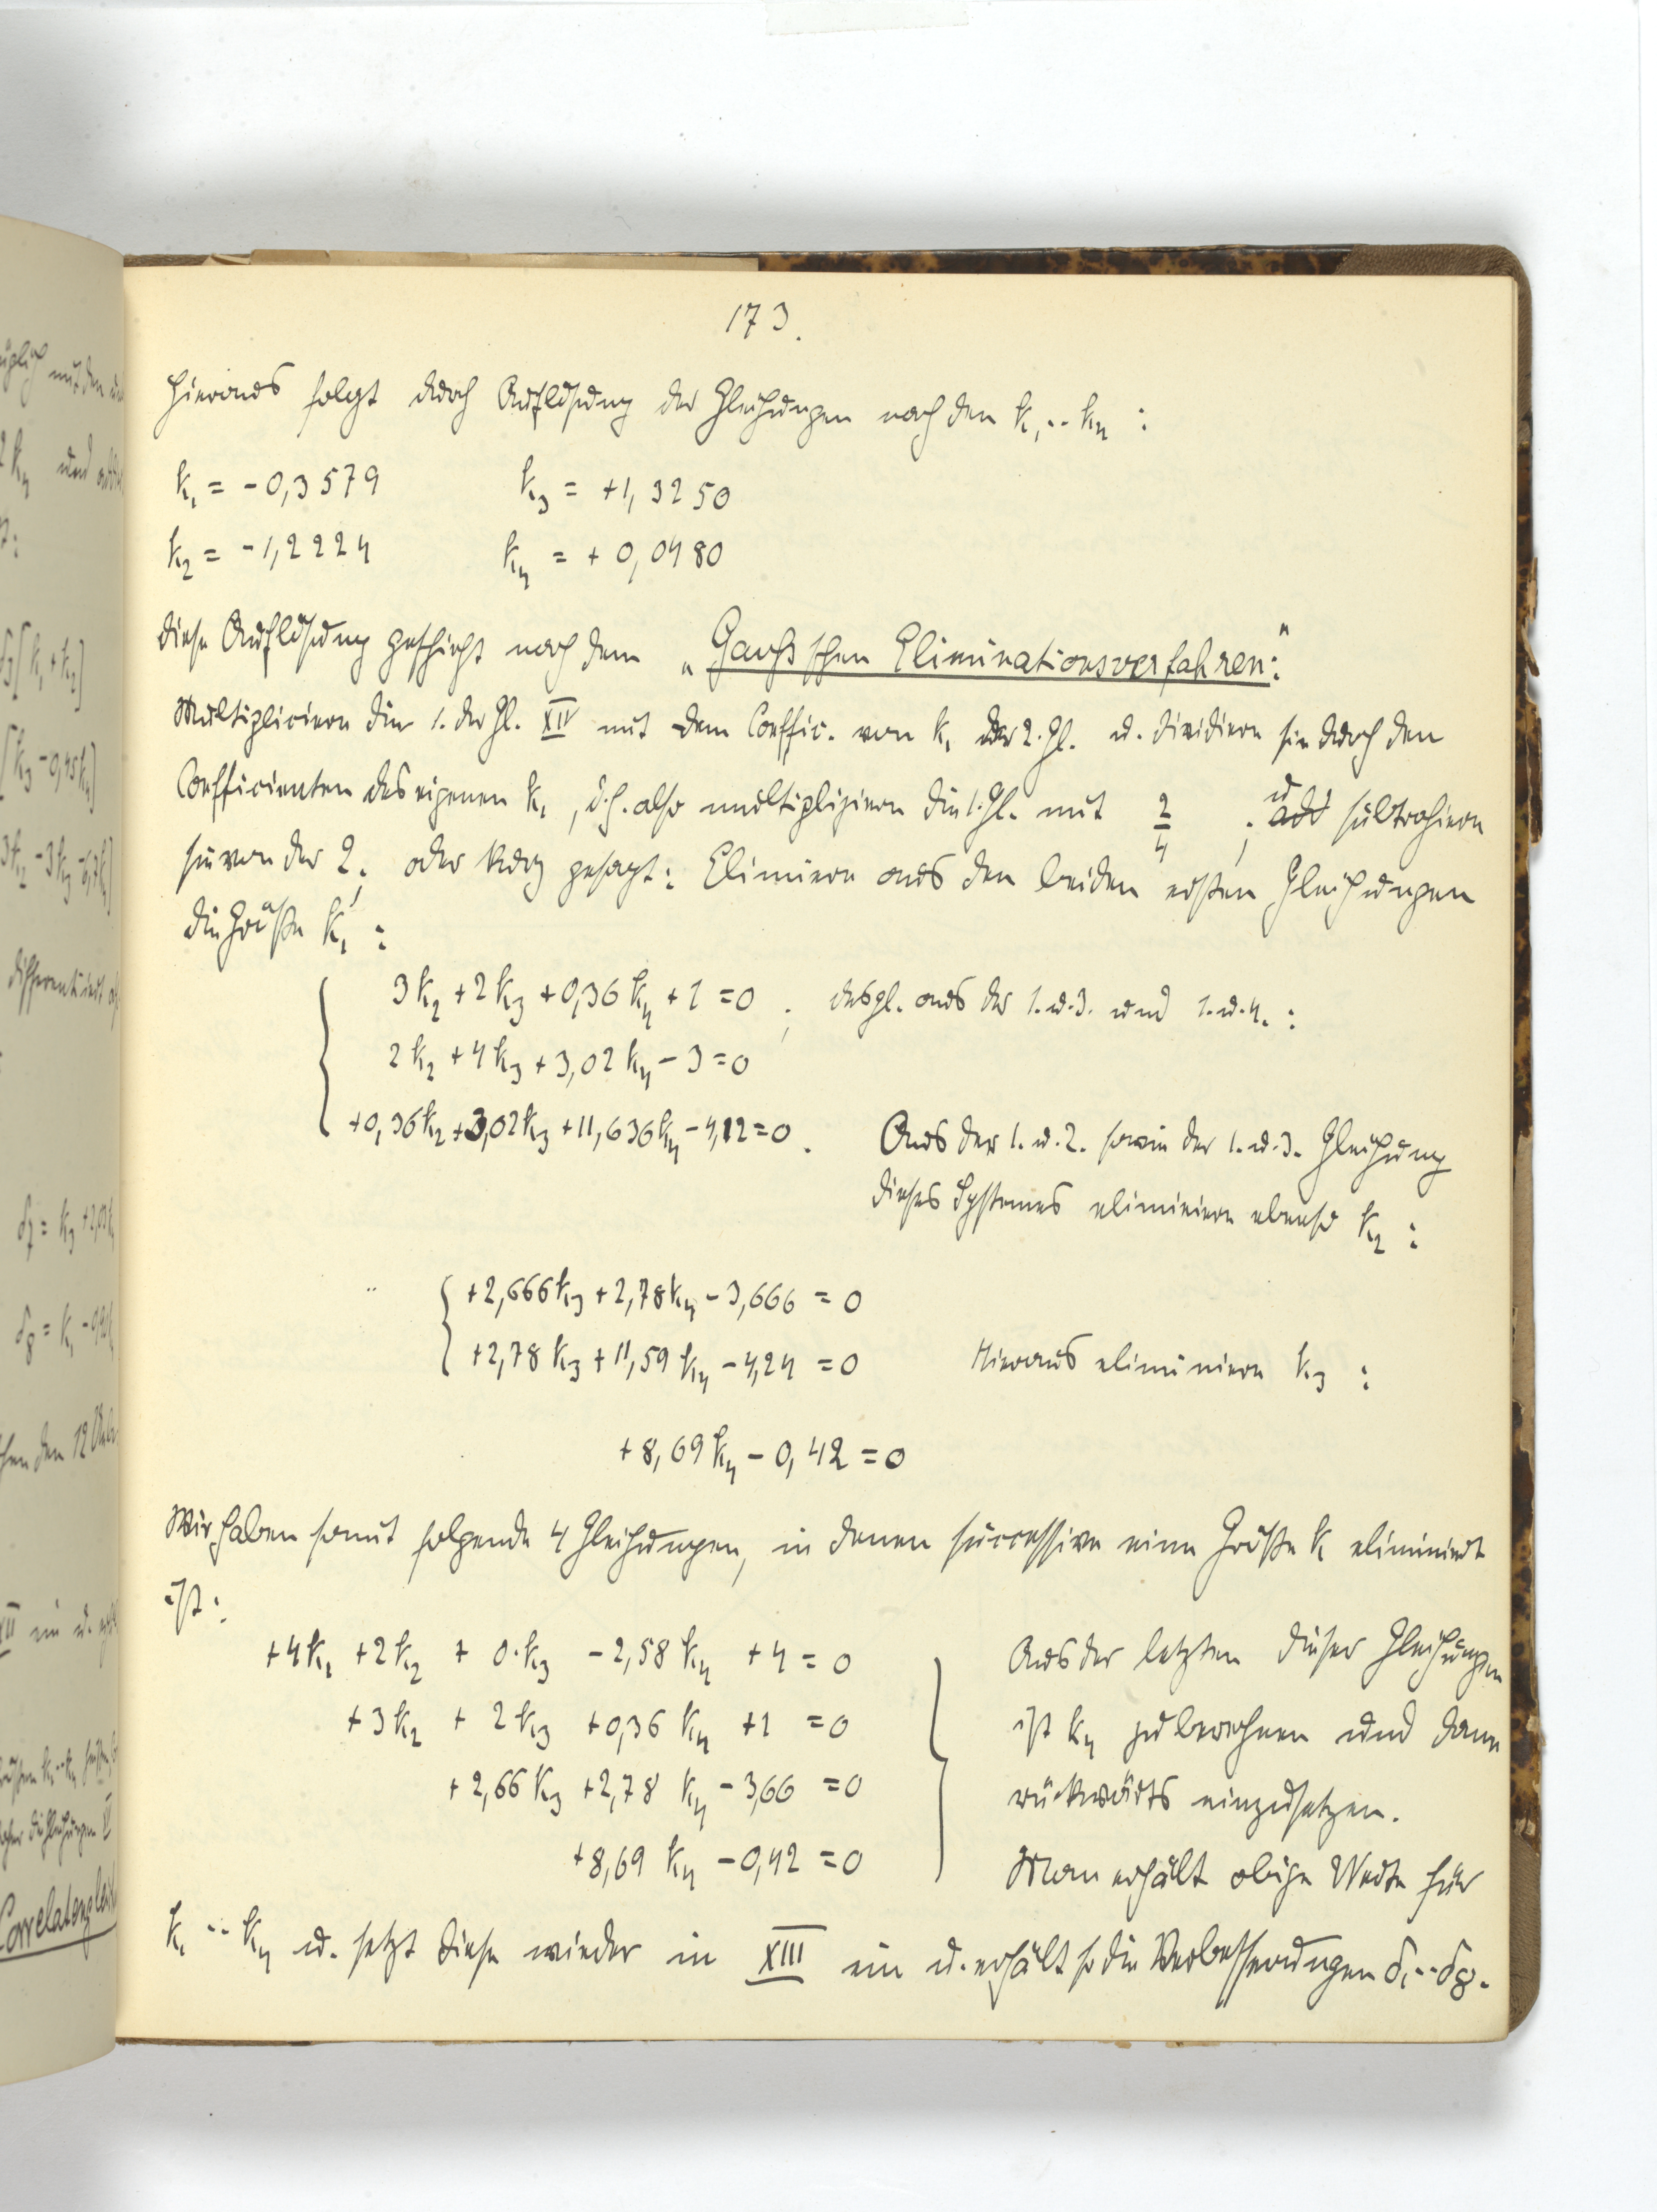 173.
Hieraus folgt durch Auflösung der Gleichungen nach den k₁ .. k₄ :
k₁ = -0,3579 k₃ = +1,3250
k₂ = -1,2224 k₄ = +0,0480
Diese Auflösung geschieht nach dem „Gauß'schen Eliminationsverfahren:"
Multipliciere die 1. der Gl. XIV mit dem Coeffic. von k₁ der 2. Gl. u. dividiere sie durch den
Coefficienten des eigenen k₁, d.h. also multipliziere die 1. Gl. mit 2/4 ; u. subtrahiere
sie von der 2; oder kurz gesagt: Eliminiere aus den beiden ersten Gleichungen
die Größe k₁ :
3k₂ + 2k₃ + 0,36k₄ + 1 = 0 ; desgl. aus der 1. u. 3. und 1. u. 4. :
2k₂ + 4k₃ + 3,02k₄ - 3 = 0
+0,36k₂ + 3,02k₃ + 11,636k₄ - 4,12 = 0. Aus der 1. u. 2. sowie der 1. u. 3. Gleichung
dieses Systemes eliminiere ebenso k₂ :
+2,666k₃ + 2,78k₄ - 3,666 = 0
+2,78k₃ + 11,59k₄ - 4,24 = 0 Hieraus eliminiere k₃ :
+8,69k₄ - 0,42 = 0
Wir haben somit folgende 4 Gleichungen, in denen successive eine Größe k eliminiert
ist:
+4k₁ + 2k₂ + 0·k₃ - 2,58k₄ + 4 = 0 Aus der letzten dieser Gleichungen
+3k₂ + 2k₃ + 0,36k₄ + 1 = 0 ist k₄ zu berechnen und dann
+2,66k₃ + 2,78k₄ - 3,66 = 0 rückwärts einzusetzen.
+8,69k₄ - 0,42 = 0 Man erhält obige Werte für
k₁ .. k₄ u. setzt diese wieder in XIII ein u. erhält so die Verbesserungen δ₁ .. δ₈.